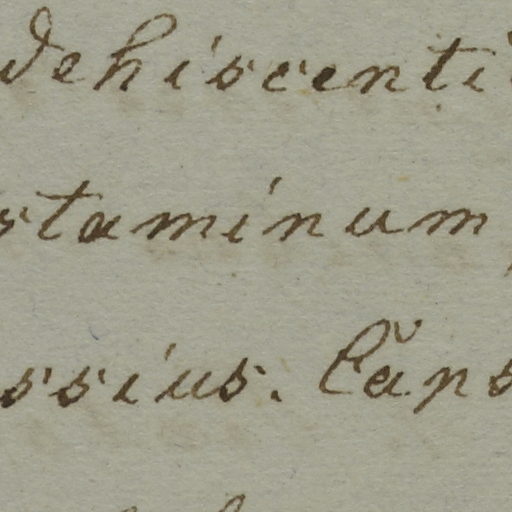 dehiscenti
staminum,
ssius. Căps